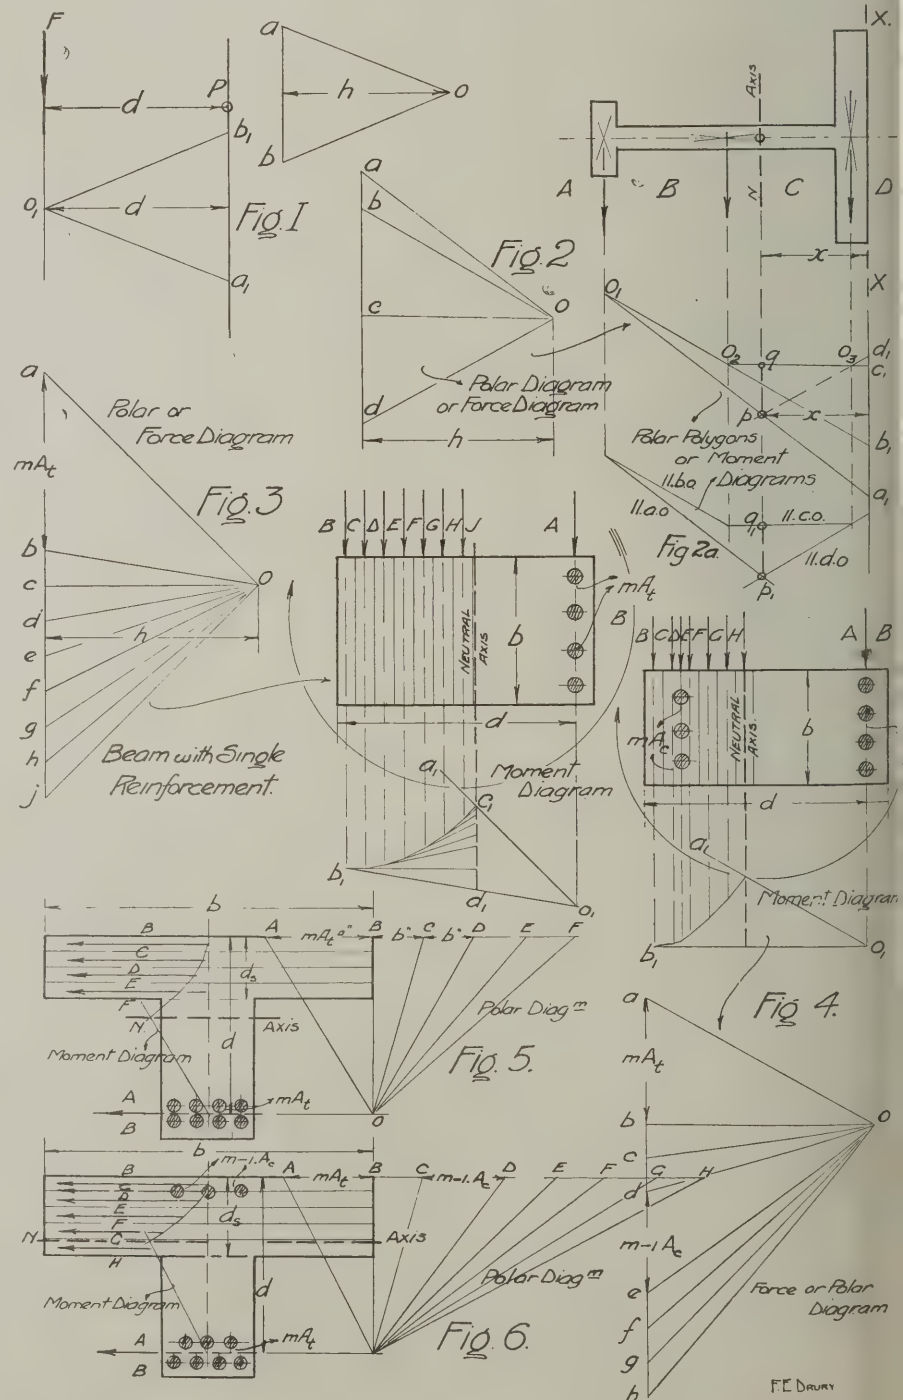 F
d
P
b₁
O₁
d
a₁
Fig. 1
a
h
O
b
a
b
c
O
d
h
Fig. 2
Polar Diagram
or Force Diagram
X.
Axis
N
A
B
C
D
x
X
O₁
O₂
q
O₃
d₁
c₁
p
x
b₁
a₁
Polar Polygons
or Moment
Diagrams
ll.b.o
ll.a.o
q₁
ll.c.o.
ll.d.o
p₁
Fig 2a.
a
mAₜ
Polar or
Force Diagram
Fig. 3
b
c
d
e
f
g
h
j
O
h
Beam with Single
Reinforcement.
B C D E F G H J
A
mAₜ
B
NEUTRAL
AXIS
b
d
a₁
Moment
Diagram
C₁
b₁
d₁
O₁
B C D E F G H
A B
mA꜀
NEUTRAL
AXIS.
b
d
a₁
Moment Diagram
b₁
O₁
Fig 4.
a
mAₜ
b
c
d
m-1 A꜀
e
f
g
h
O
Force or Polar
Diagram
b
B
C
D
E
F
N.
Axis
dₛ
d
A
mAₜ a"
B
b"
C
b"
D
E
F
Moment Diagram
Polar Diagᵐ
Fig. 5.
A
B
mAₜ
O
b
B
C
D
E
F
G
H
m-1.A꜀
A
mAₜ
B
C
m-1.A꜀
D
E
F
G
H
dₛ
N
Axis
d
Moment Diagram
Polar Diagᵐ
Fig. 6.
A
B
mAₜ
F.E DRURY